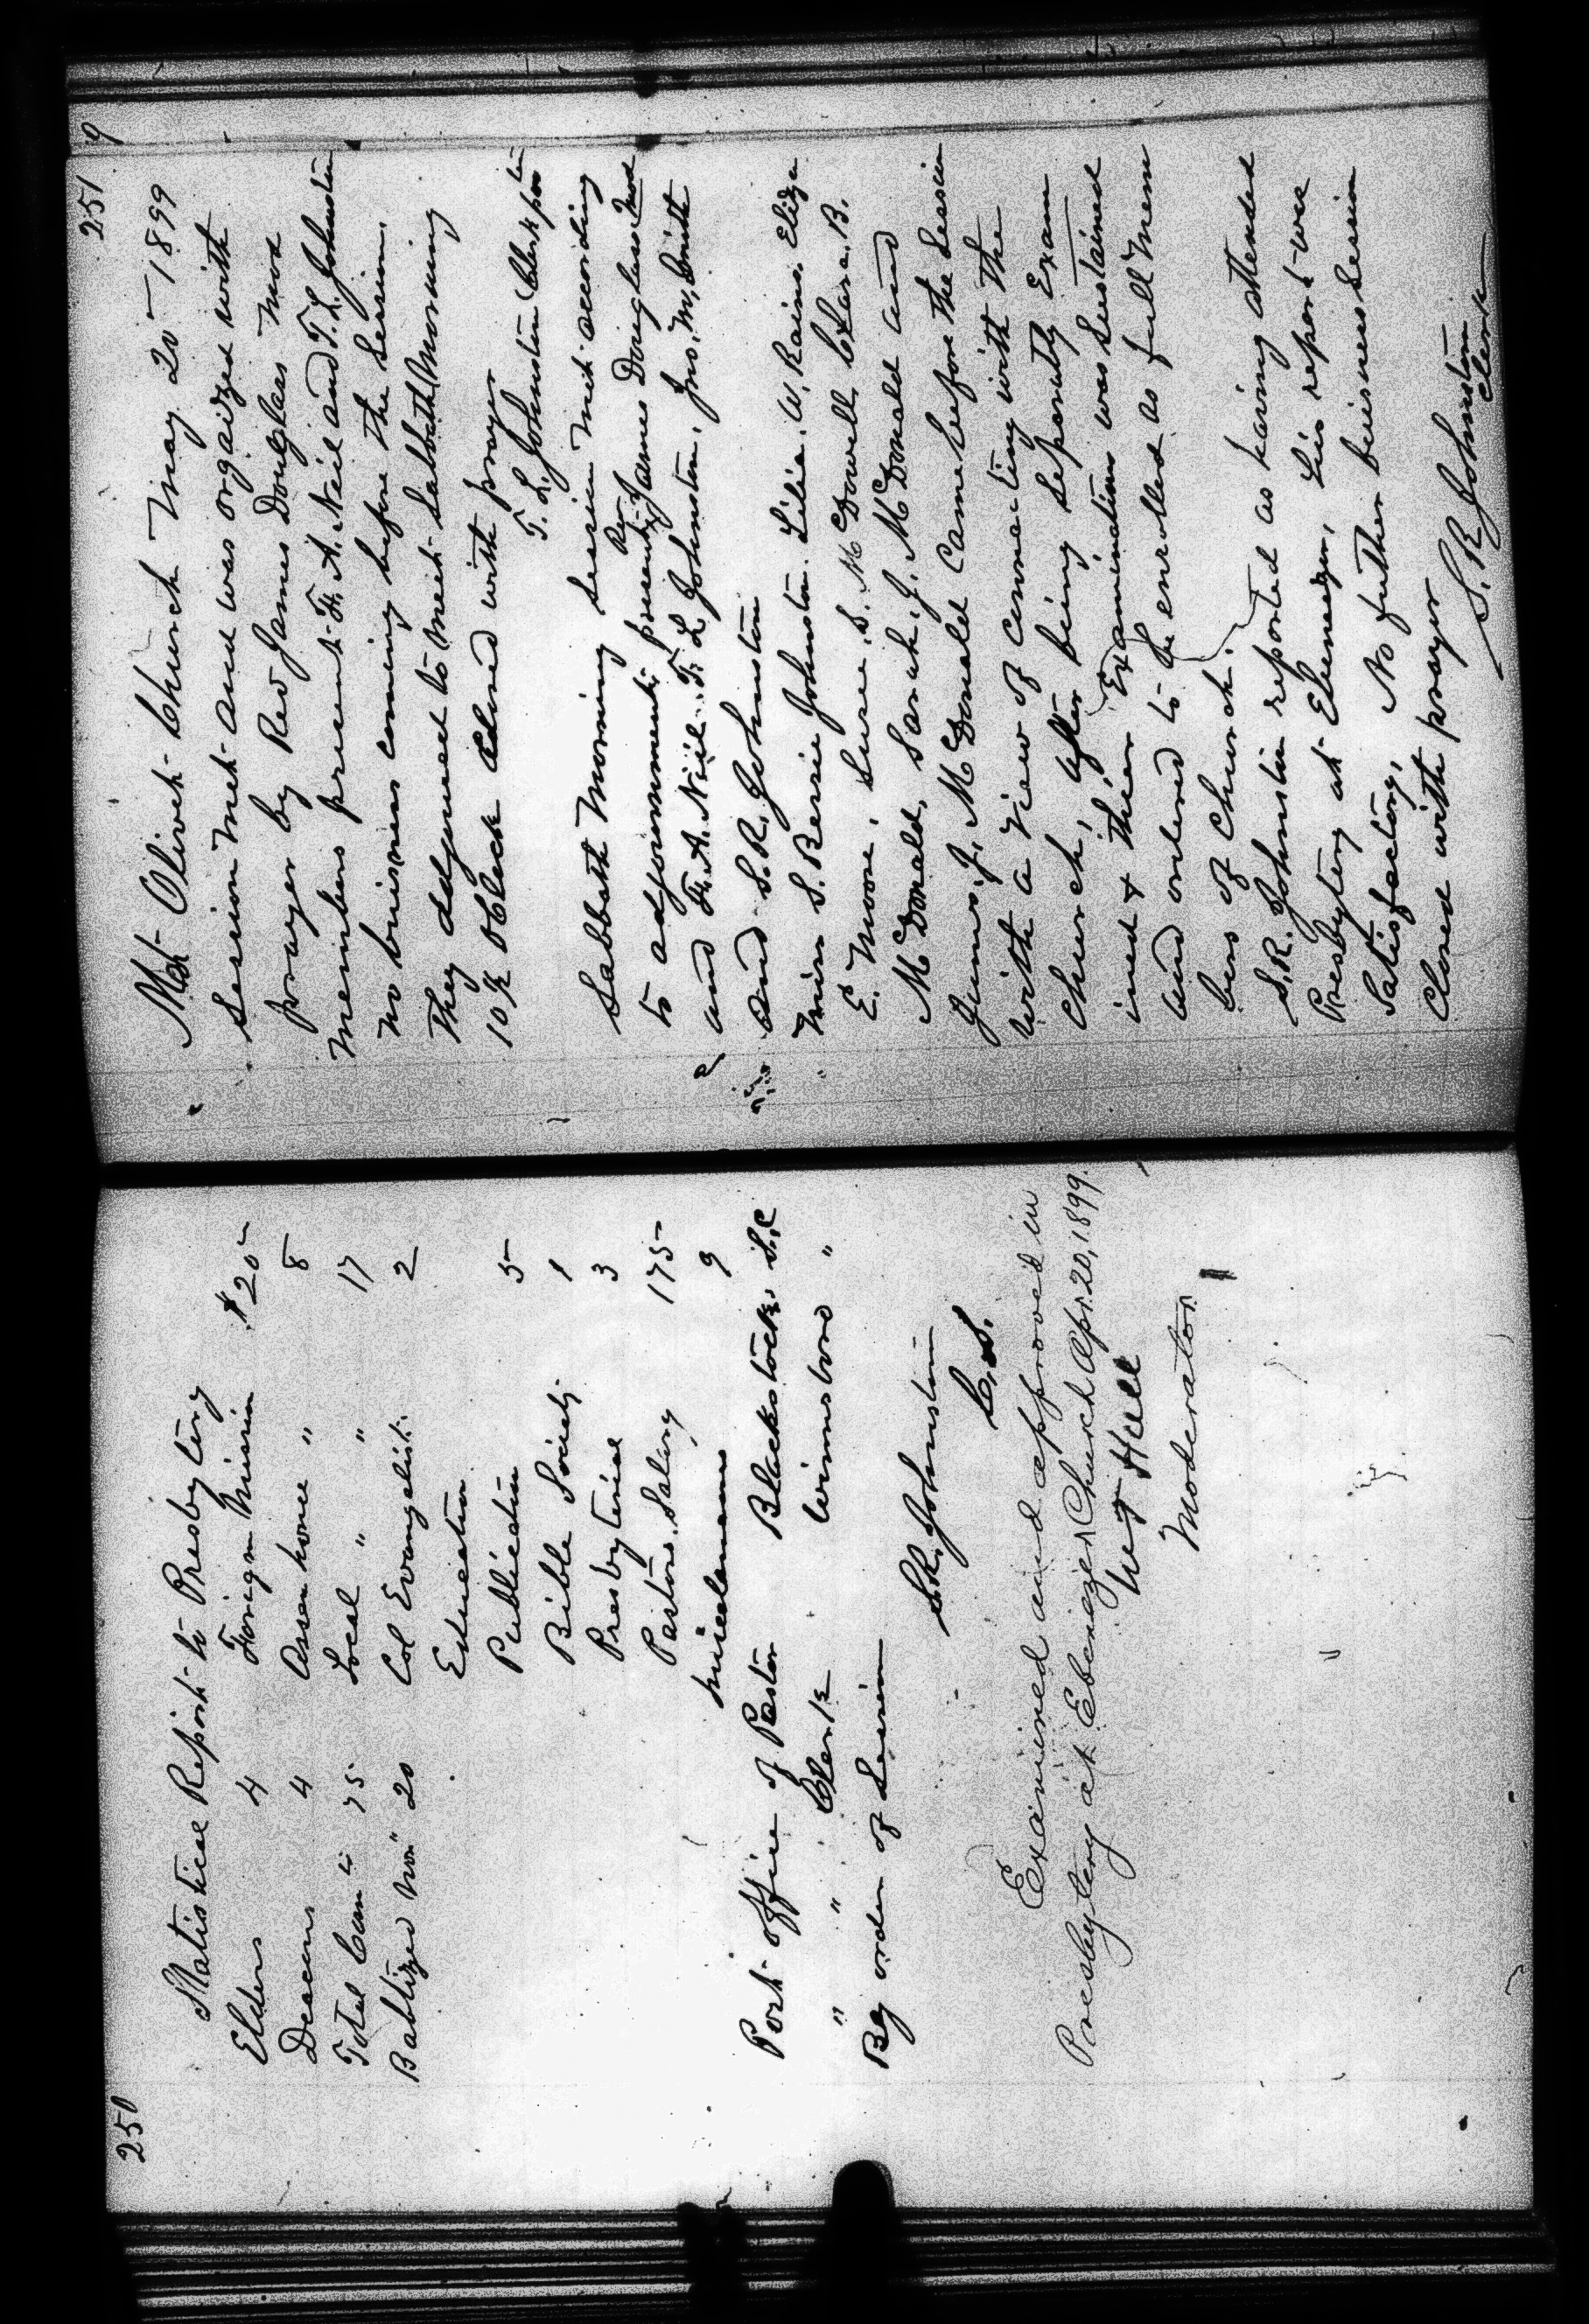 250
Statistical Report to Presbytery
Elders 4 Foreign Mission $20
Deacons 4 Assen home " 8
Total Com " 75 Local " " 17
Babtized non " 20 Col Evangelist 2
Education
Publication 5
Bible Society 1
Presbyterial 3
Pastors Salary 175
Micelaneaous 9
Post office of Pastor Blackstock S.C
" " Clerk Winnsboro "
By order of Session
S.R. Johnston
C.S.
Examined and approved in
Presbytery at Ebenezer Church Apr. 20, 1899.
Moderator
251
9
Mt Olivet Church May 20 1899
Session met and was orgaized with
prayer by Rev James Douglass Mod
Members present F. A. Neil and T. L. Johnston
no buisiness coming before the Session.
They adjurned to meet Sabbath Morning
10 ½ oClock Closed with prayer
T. L. Johnston Clerk pro tem
Sabbath Morning Session met according
to adjornment, present Rev James Douglass Mod
and F. A. Neil T. L Johnston, Jno. M. Smith
and S. R. Johnston
Miss S. Bessie Johnston. Lilia. W. Rains. Eliza
E. Moore. Susie. S. McDowell Clara. B.
McDonald, Sarah. J. McDonald and
Junus. J. McDonald Came before the Session
with a view of connecting with the
Church, after being seperatly Exam
ined & their Examination was sustained
and ordered to be enrolled as full Mem
bers of Church.
S.R. Johnston reported as having attended
Presbytery at Ebenezer, his report was
Satisfactory, No futher buisness Session
Closed with prayer
S. R Johnston
Clerk